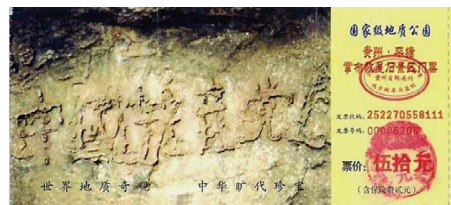 世界地质奇观 中华旷代珍宝
国家级地质公园
贵州·平塘
掌布
景区门票
发票代码: 252270558111
发票号码:
票价: 伍拾元
(含保险费贰元)